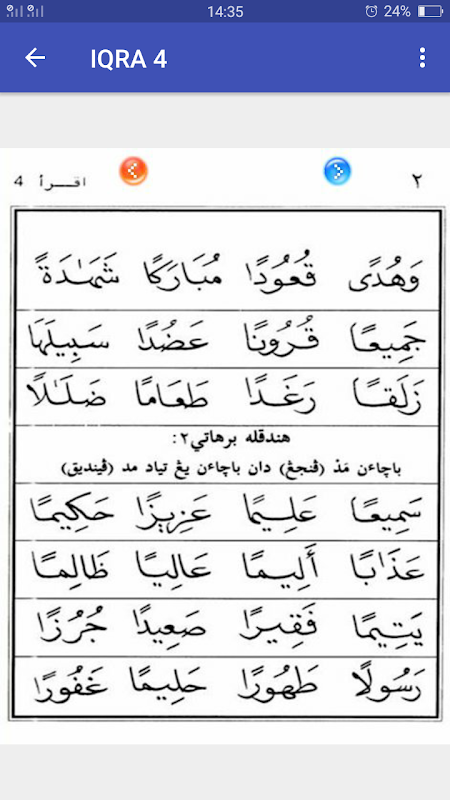 14:35 24%
IQRA 4
٢ اقـــرأ 4
وَهُدًى قُعُودًا مُبَارَكًا شَهَـٰدَةً
جَمِيعًا قُرُونًا عَضُدًا سَبِيلَهَا
زَلَقًا رَغَدًا طَعَامًا ضَلَـٰلًا
هندقله برهاتي٢:
باچاءن مَدْ (ڤنجڠ) دان باچاءن يڠ تياد مد (ڤينديق)
سَمِيعًا عَلِيمًا عَزِيزًا حَكِيمًا
عَذَابًا أَلِيمًا عَالِيًا ظَالِمًا
يَتِيمًا فَقِيرًا صَعِيدًا جُرُزًا
رَسُولًا طَهُورًا حَلِيمًا غَفُورًا